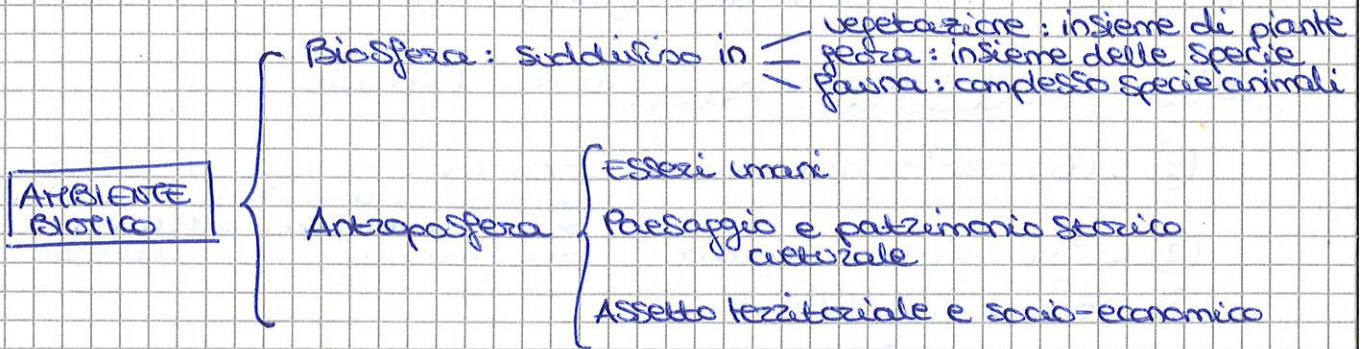 Biosfera: suddiviso in
vegetazione: insieme di piante
flora: insieme delle specie
fauna: complesso specie animali
AMBIENTE
BIOTICO
Antroposfera
Esseri umani
Paesaggio e patrimonio storico
culturale
Assetto territoriale e socio-economico